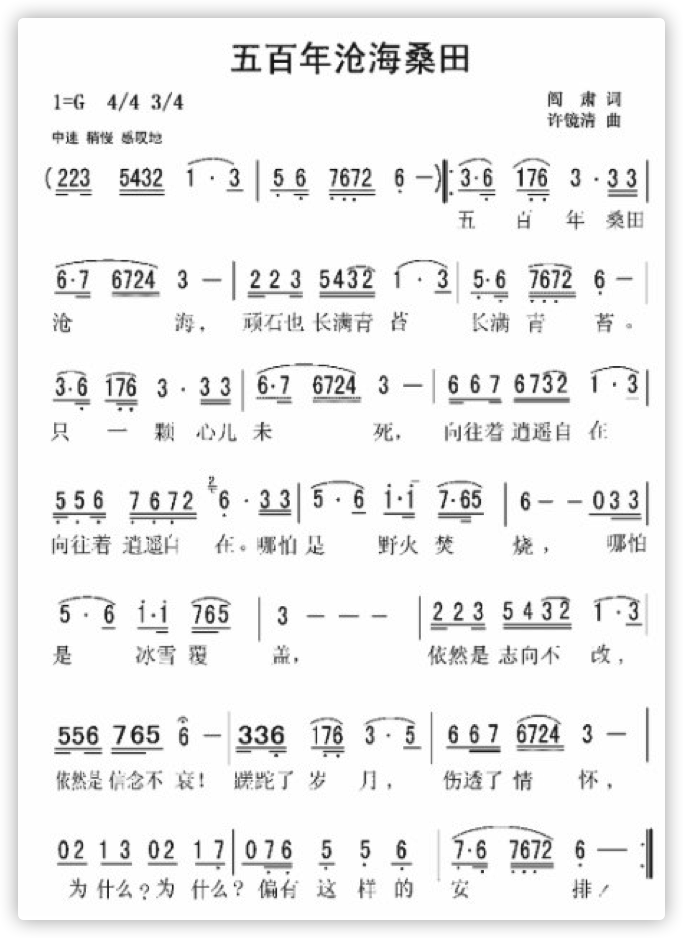 五百年沧海桑田
1=G 4/4 3/4
阎 肃 词
许镜清 曲
中速 稍慢 感叹地
(223 5432 1·3 | 56 7672 6 —) 3·6 176 3·33 |
五 百 年 桑田
6·7 6724 3 — | 223 5432 1·3 | 5·6 7672 6 — |
沧 海, 顽石也长满青苔 长满 青 苔。
3·6 176 3·33 | 6·7 6724 3 — | 667 6732 1·3 |
只 一 颗 心儿未 死, 向往着逍遥自在
556 7672 2 6·33 | 5·6 1·1 7·65 | 6 — — 033 |
向往着 逍遥自 在。哪怕是 野火焚 烧, 哪怕
5·6 1·1 765 | 3 — — — | 223 5432 1·3 |
是 冰雪覆 盖, 依然是志向不 改,
556 765 6 — | 336 176 3·5 | 667 6724 3 — |
依然是信念不 衰! 蹉跎了岁 月, 伤透了情 怀,
02 13 02 17 | 076 5 5 6 | 7·6 7672 6 — :|
为什么?为什么?偏有这样的 安 排!